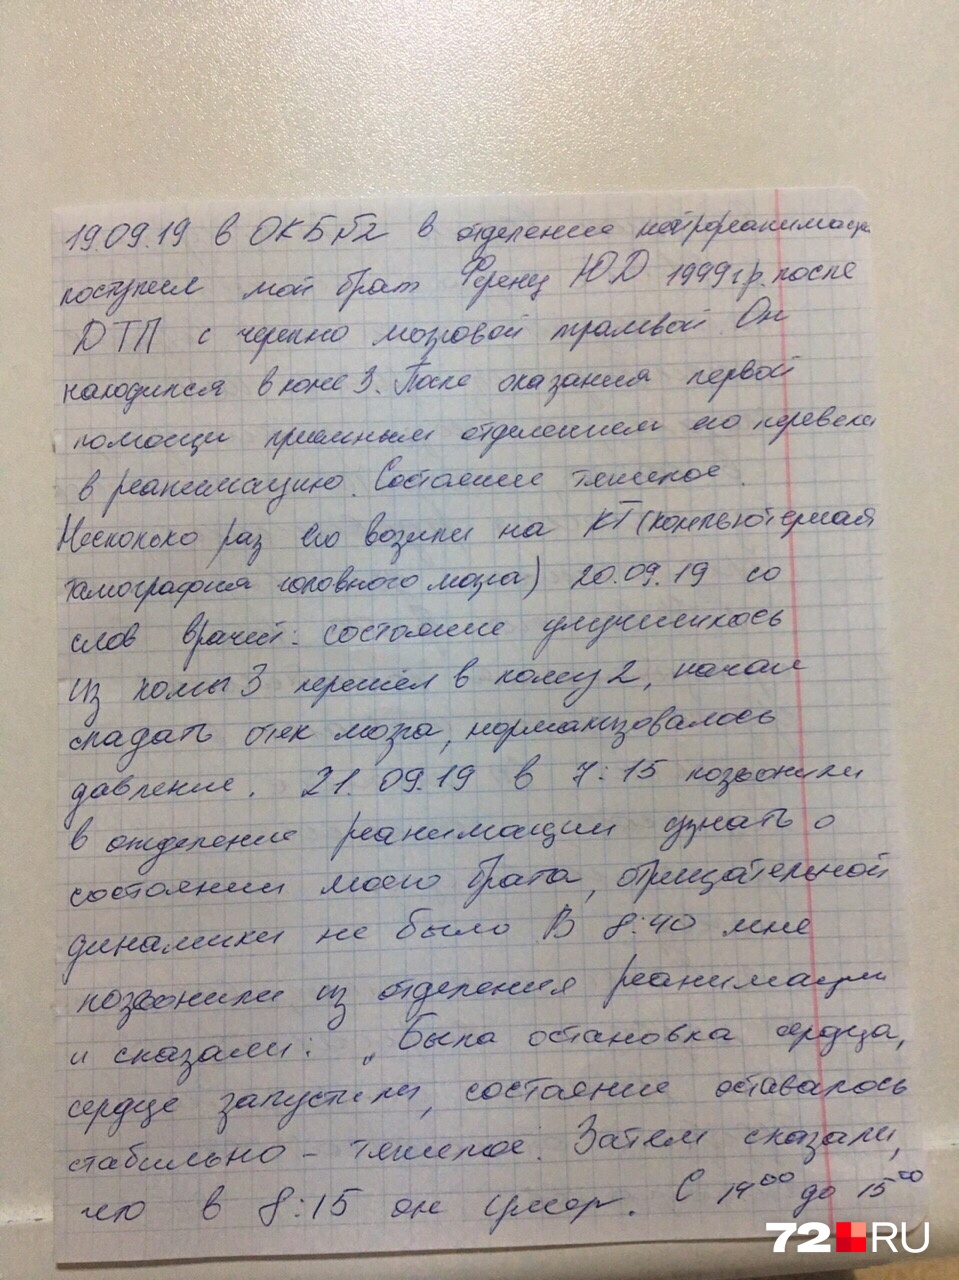 19.09.19 в ОКБ №2 в отделение нейрореанимации
поступил мой брат Ференц Ю Д 1999 г р. после
ДТП с черепно мозговой травмой. Он
находился в коме 3. После оказания первой
помощи приемным отделением его перевели
в реанимацию. Состояние тяжелое.
Несколько раз его возили на КТ (компьютерная
тамография головного мозга) 20.09.19 со
слов врачей: состояние улучшилось
из комы 3 перешел в кому 2, начал
спадать отек мозга, нормализовалось
давление. 21.09.19 в 7:15 позвонили
в отделение реанимации узнать о
состоянии моего брата, отрицательной
динамики не было В 8:40 мне
позвонили из отделения реанимации
и сказали: „Была остановка сердца,
сердце запустили, состояние оставалось
стабильно - тяжелое. Затем сказали,
что в 8:15 он умер. С 14⁰⁰ до 15⁰⁰
72 RU